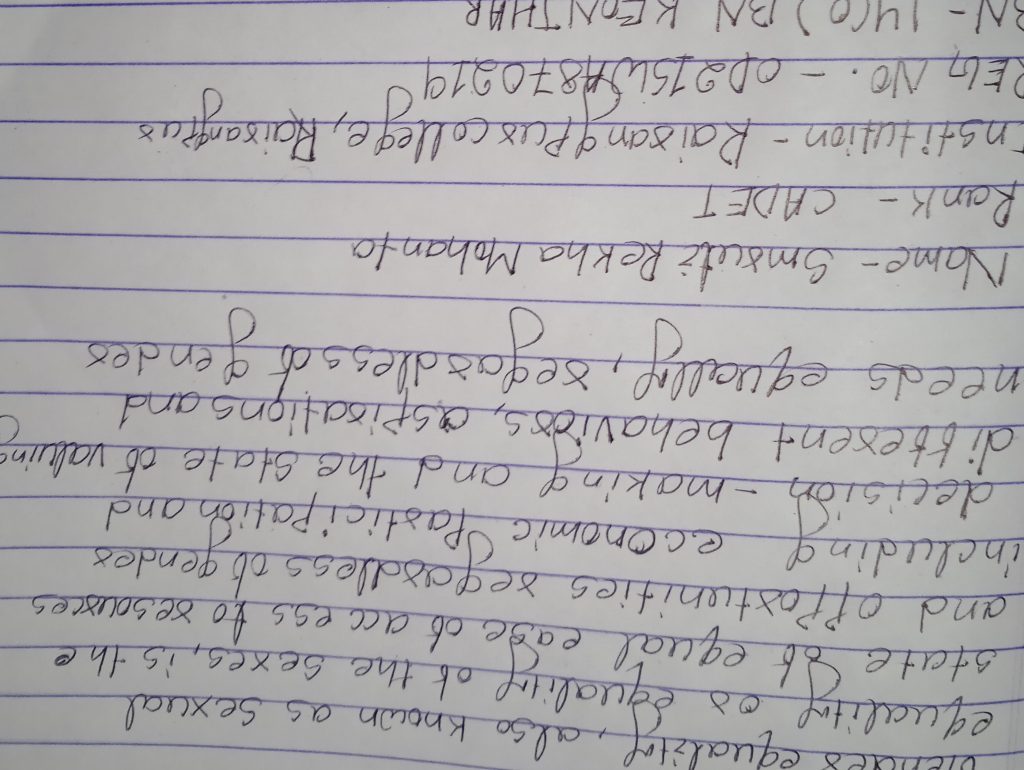 Gender equality, also known as sexual
equality or equality of the sexes, is the
state of equal ease of access to resources
and opportunities regardless of gender
including economic participation and
decision-making and the state of valuing
different behaviors, aspirations and
needs equally, regardless of gender
Name- Smruti Rekha Mohanta
Rank - CADET
Institution - Raisangpur college, Raisangpur
REG NO. - OD21SWA870219
BN - 14(O) BN KEONJHAR